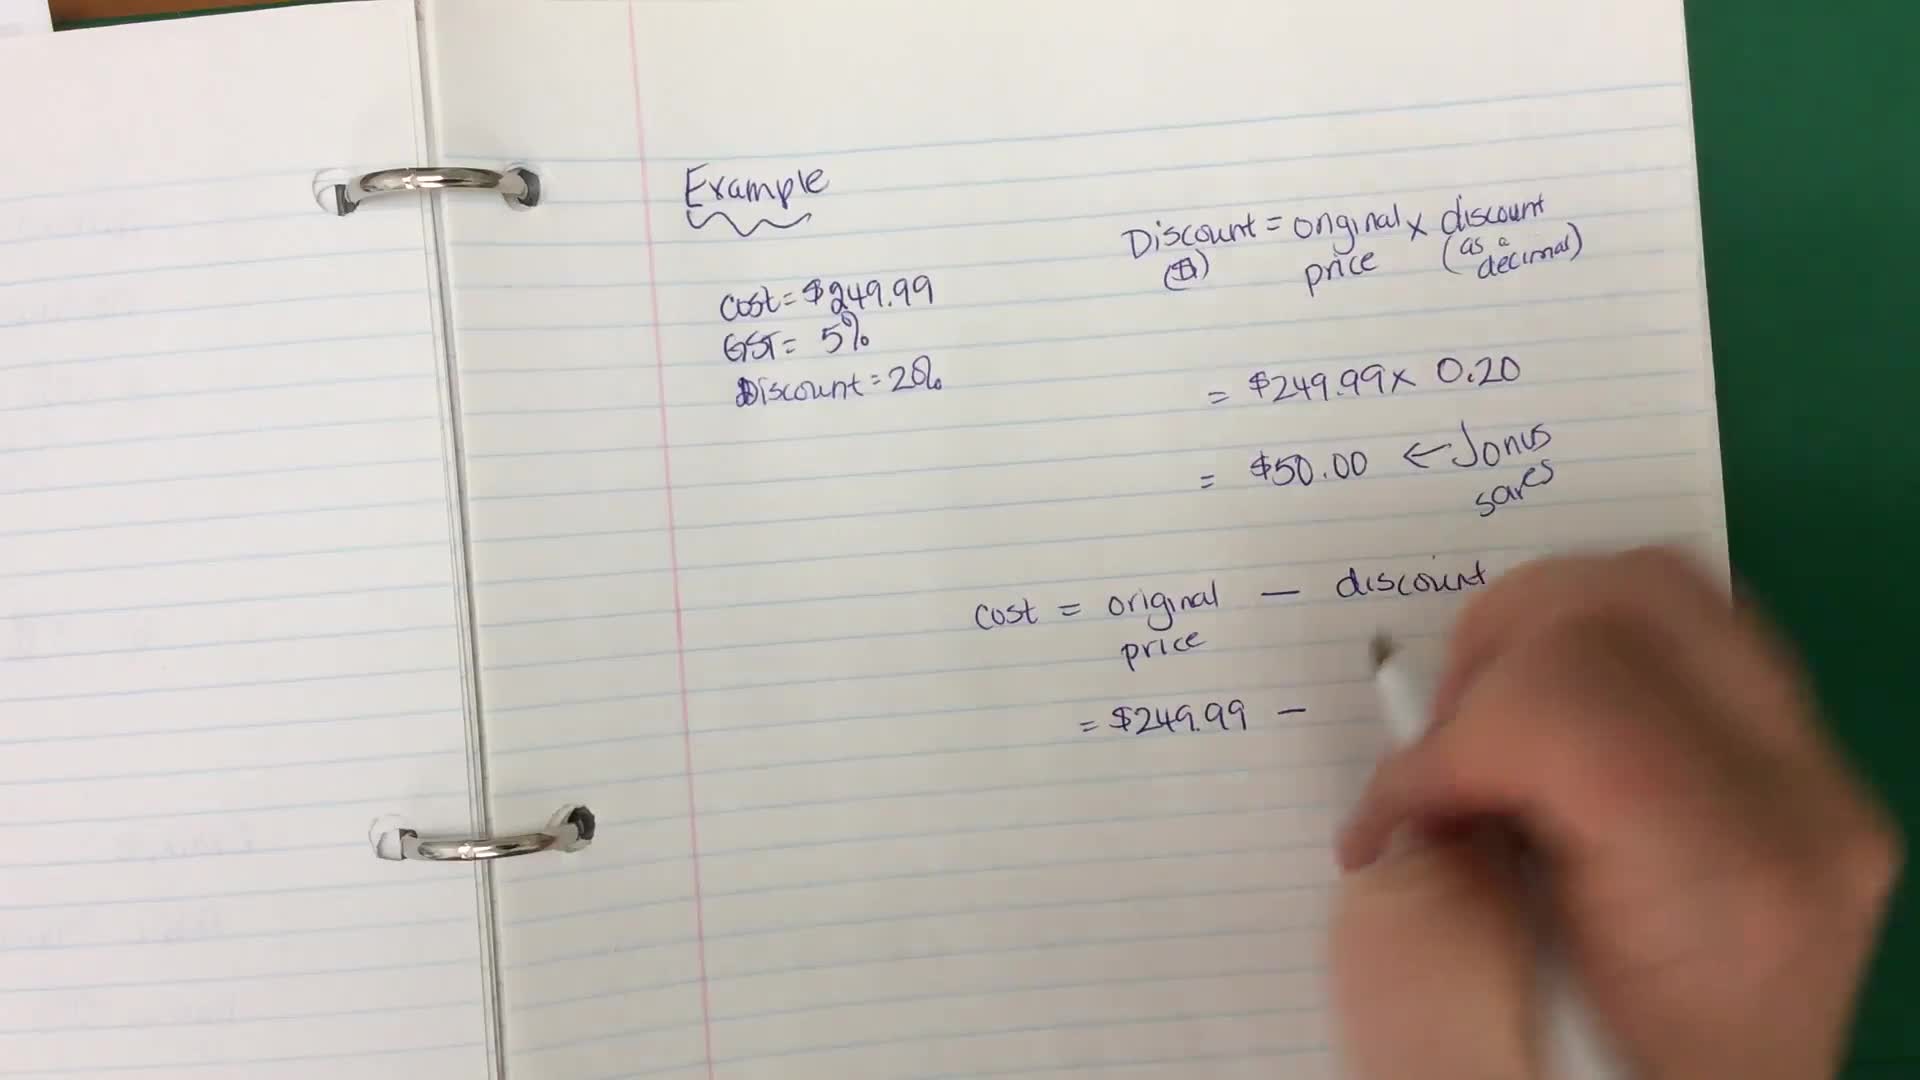 Example
Cost = $249.99
GST = 5%
Discount = 20%
Discount = original x discount
($) price (as a decimal)
= $249.99 x 0.20
= $50.00 ← Jonus
saves
cost = original — discount
price
= $249.99 —